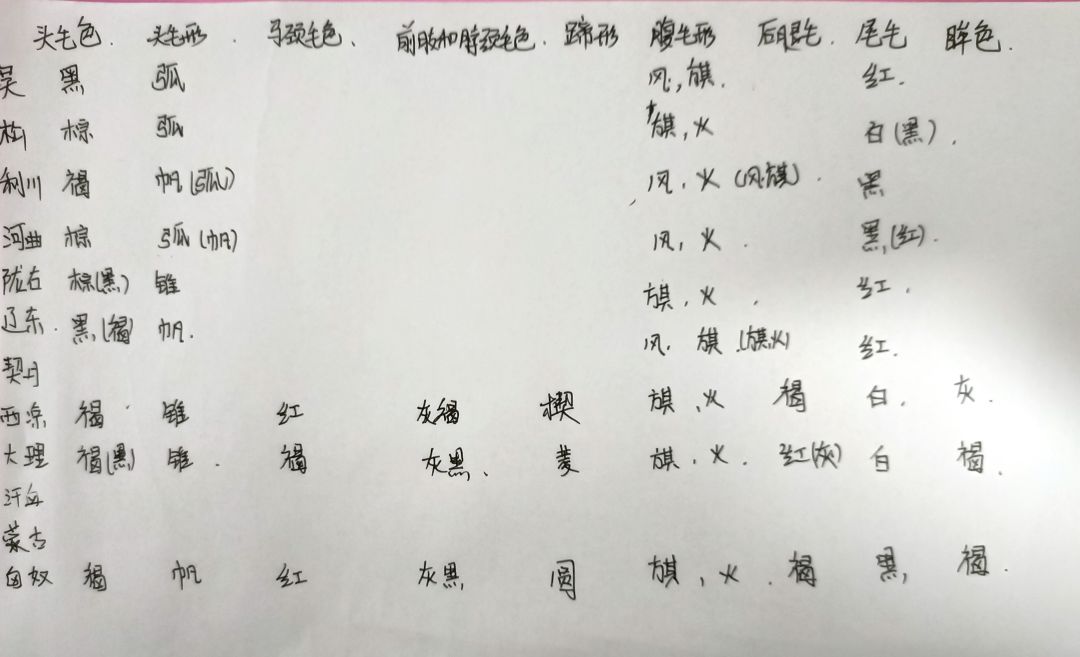 头毛色. 头毛形. 马颈毛色、 前肢和脖颈毛色. 蹄形 腹毛形 后腿毛. 尾毛 眸色.
吴 黑 弧 风,旗. 红.
棕 弧 旗,火 白(黑).
利川 褐 帆(弧) 风,火(风旗). 黑
河曲 棕 弧(帆) 风,火. 黑,(红).
陇右 棕(黑) 锥 旗,火. 红.
辽东. 黑,(褐) 帆. 风.旗.(旗火) 红.
契丹
西凉 褐. 锥 红 灰褐 楔 旗,火 褐 白. 灰.
大理 褐(黑) 锥. 褐 灰黑、 菱 旗,火. 红(灰) 白 褐.
汗血
蒙古
匈奴 褐 帆 红 灰黑 圆 旗,火. 褐 黑, 褐.